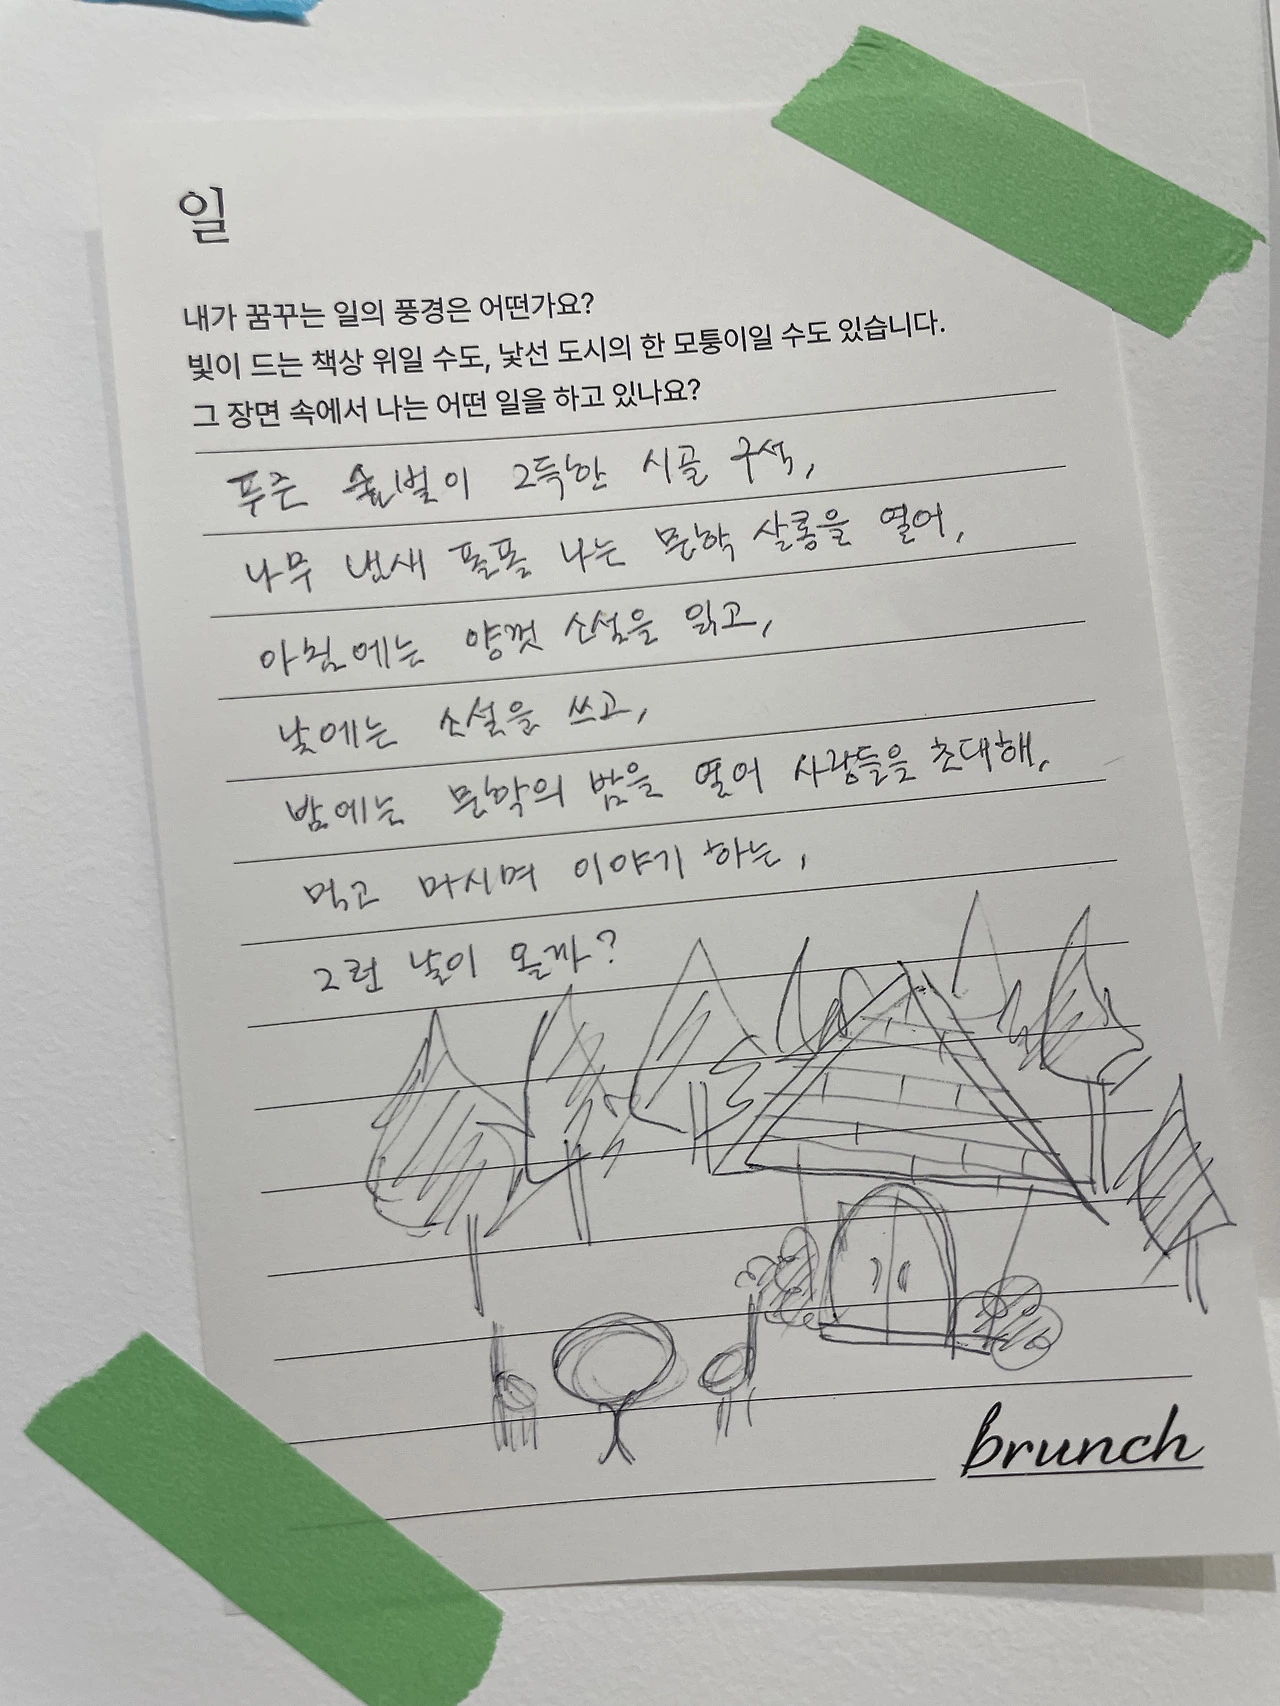 일
내가 꿈꾸는 일의 풍경은 어떤가요?
빛이 드는 책상 위일 수도, 낯선 도시의 한 모퉁이일 수도 있습니다.
그 장면 속에서 나는 어떤 일을 하고 있나요?
푸른 숲벌이 그득한 시골 구석,
나무 냄새 폴폴 나는 문학 살롱을 열어,
아침에는 양껏 소설을 읽고,
낮에는 소설을 쓰고,
밤에는 문학의 밤을 열어 사람들을 초대해,
먹고 마시며 이야기 하는,
그런 날이 올까?
brunch